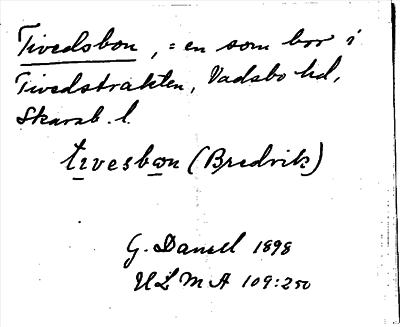 Tivedsbon, = en som bor i
Tivedstrakten, Vadsbo hd,
Skarab. l.
tivesbon (Bredvik)
G. Danell 1898
ULMA 109:250